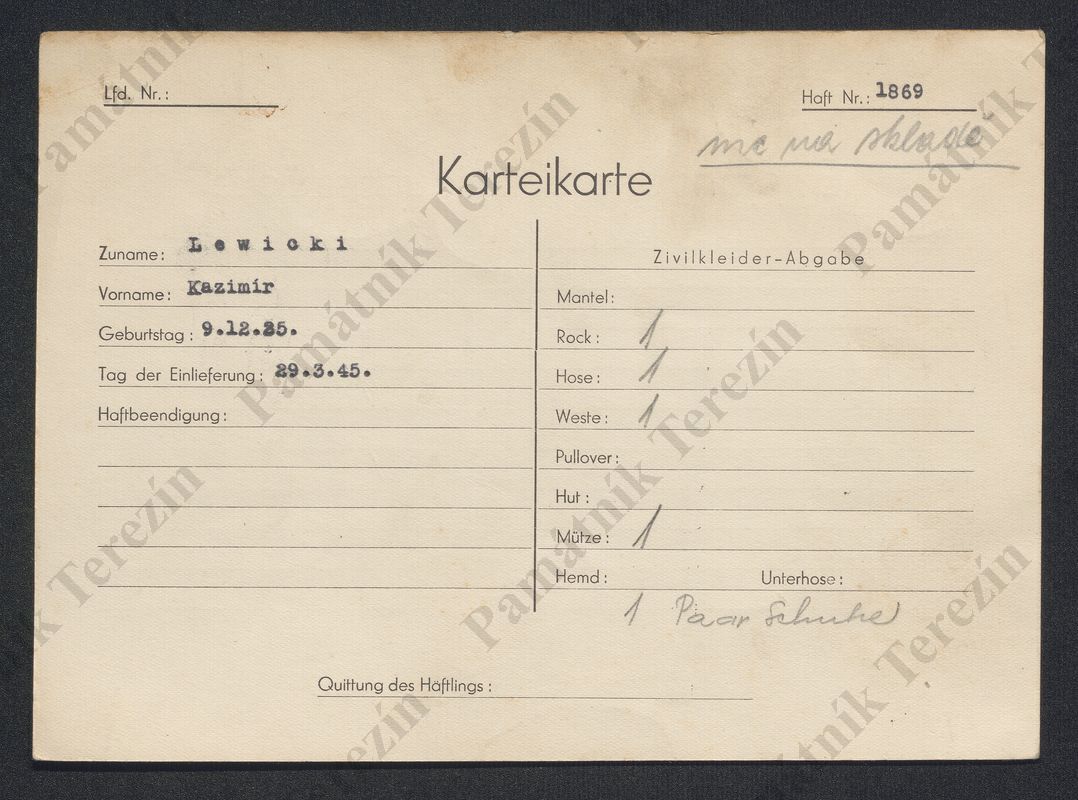 Lfd. Nr.:
Haft Nr.: 1869
nic na skladě
Karteikarte
Zuname: Lewicki
Vorname: Kazimír
Geburtstag: 9.12.25.
Tag der Einlieferung: 29.3.45.
Haftbeendigung:
Zivilkleider-Abgabe
Mantel:
Rock: 1
Hose: 1
Weste: 1
Pullover:
Hut:
Mütze: 1
Hemd: Unterhose:
1 Paar Schuhe
Quittung des Häftlings:
Památník Terezín